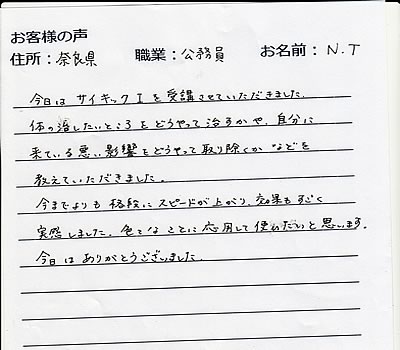 お客様の声
住所：奈良県　職業：公務員　お名前：N.T
今日は サイキックIを受講させていただきました。
体の治したいところをどうやって治すかや、自分に
来ている悪い影響をどうやって取り除くかなどを
教えていただきました。
今までよりも格段にスピードが上がり、効果もすごく
実感しました。色々なことに応用して使いたいと思います。
今日はありがとうございました。